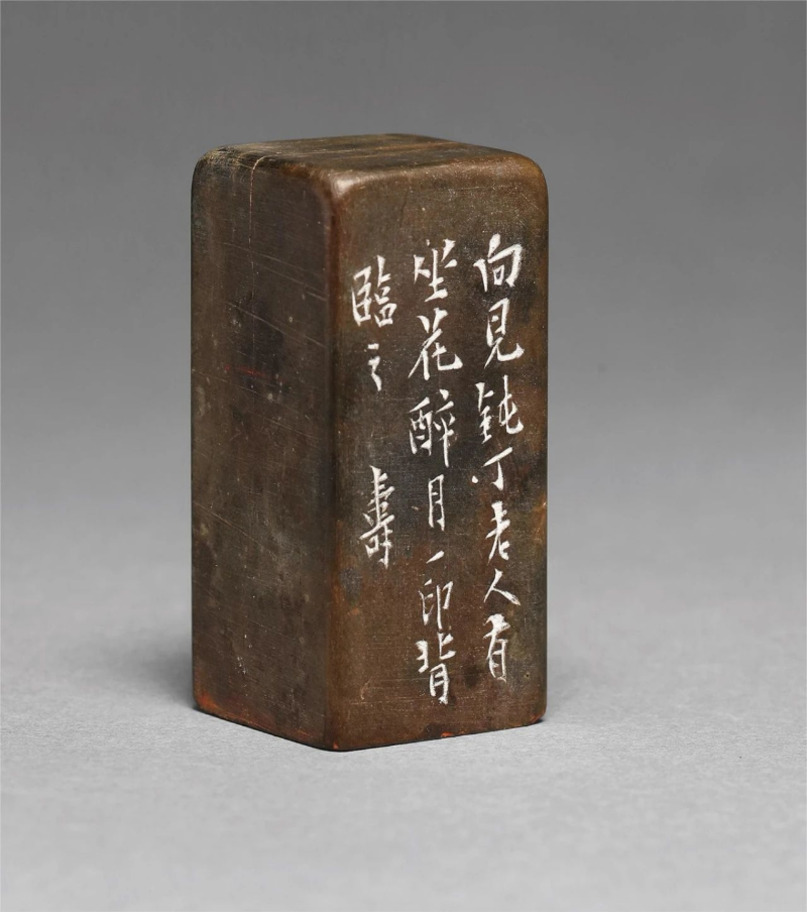 向見鈍丁老人有
坐花醉月一印背
臨之 壽